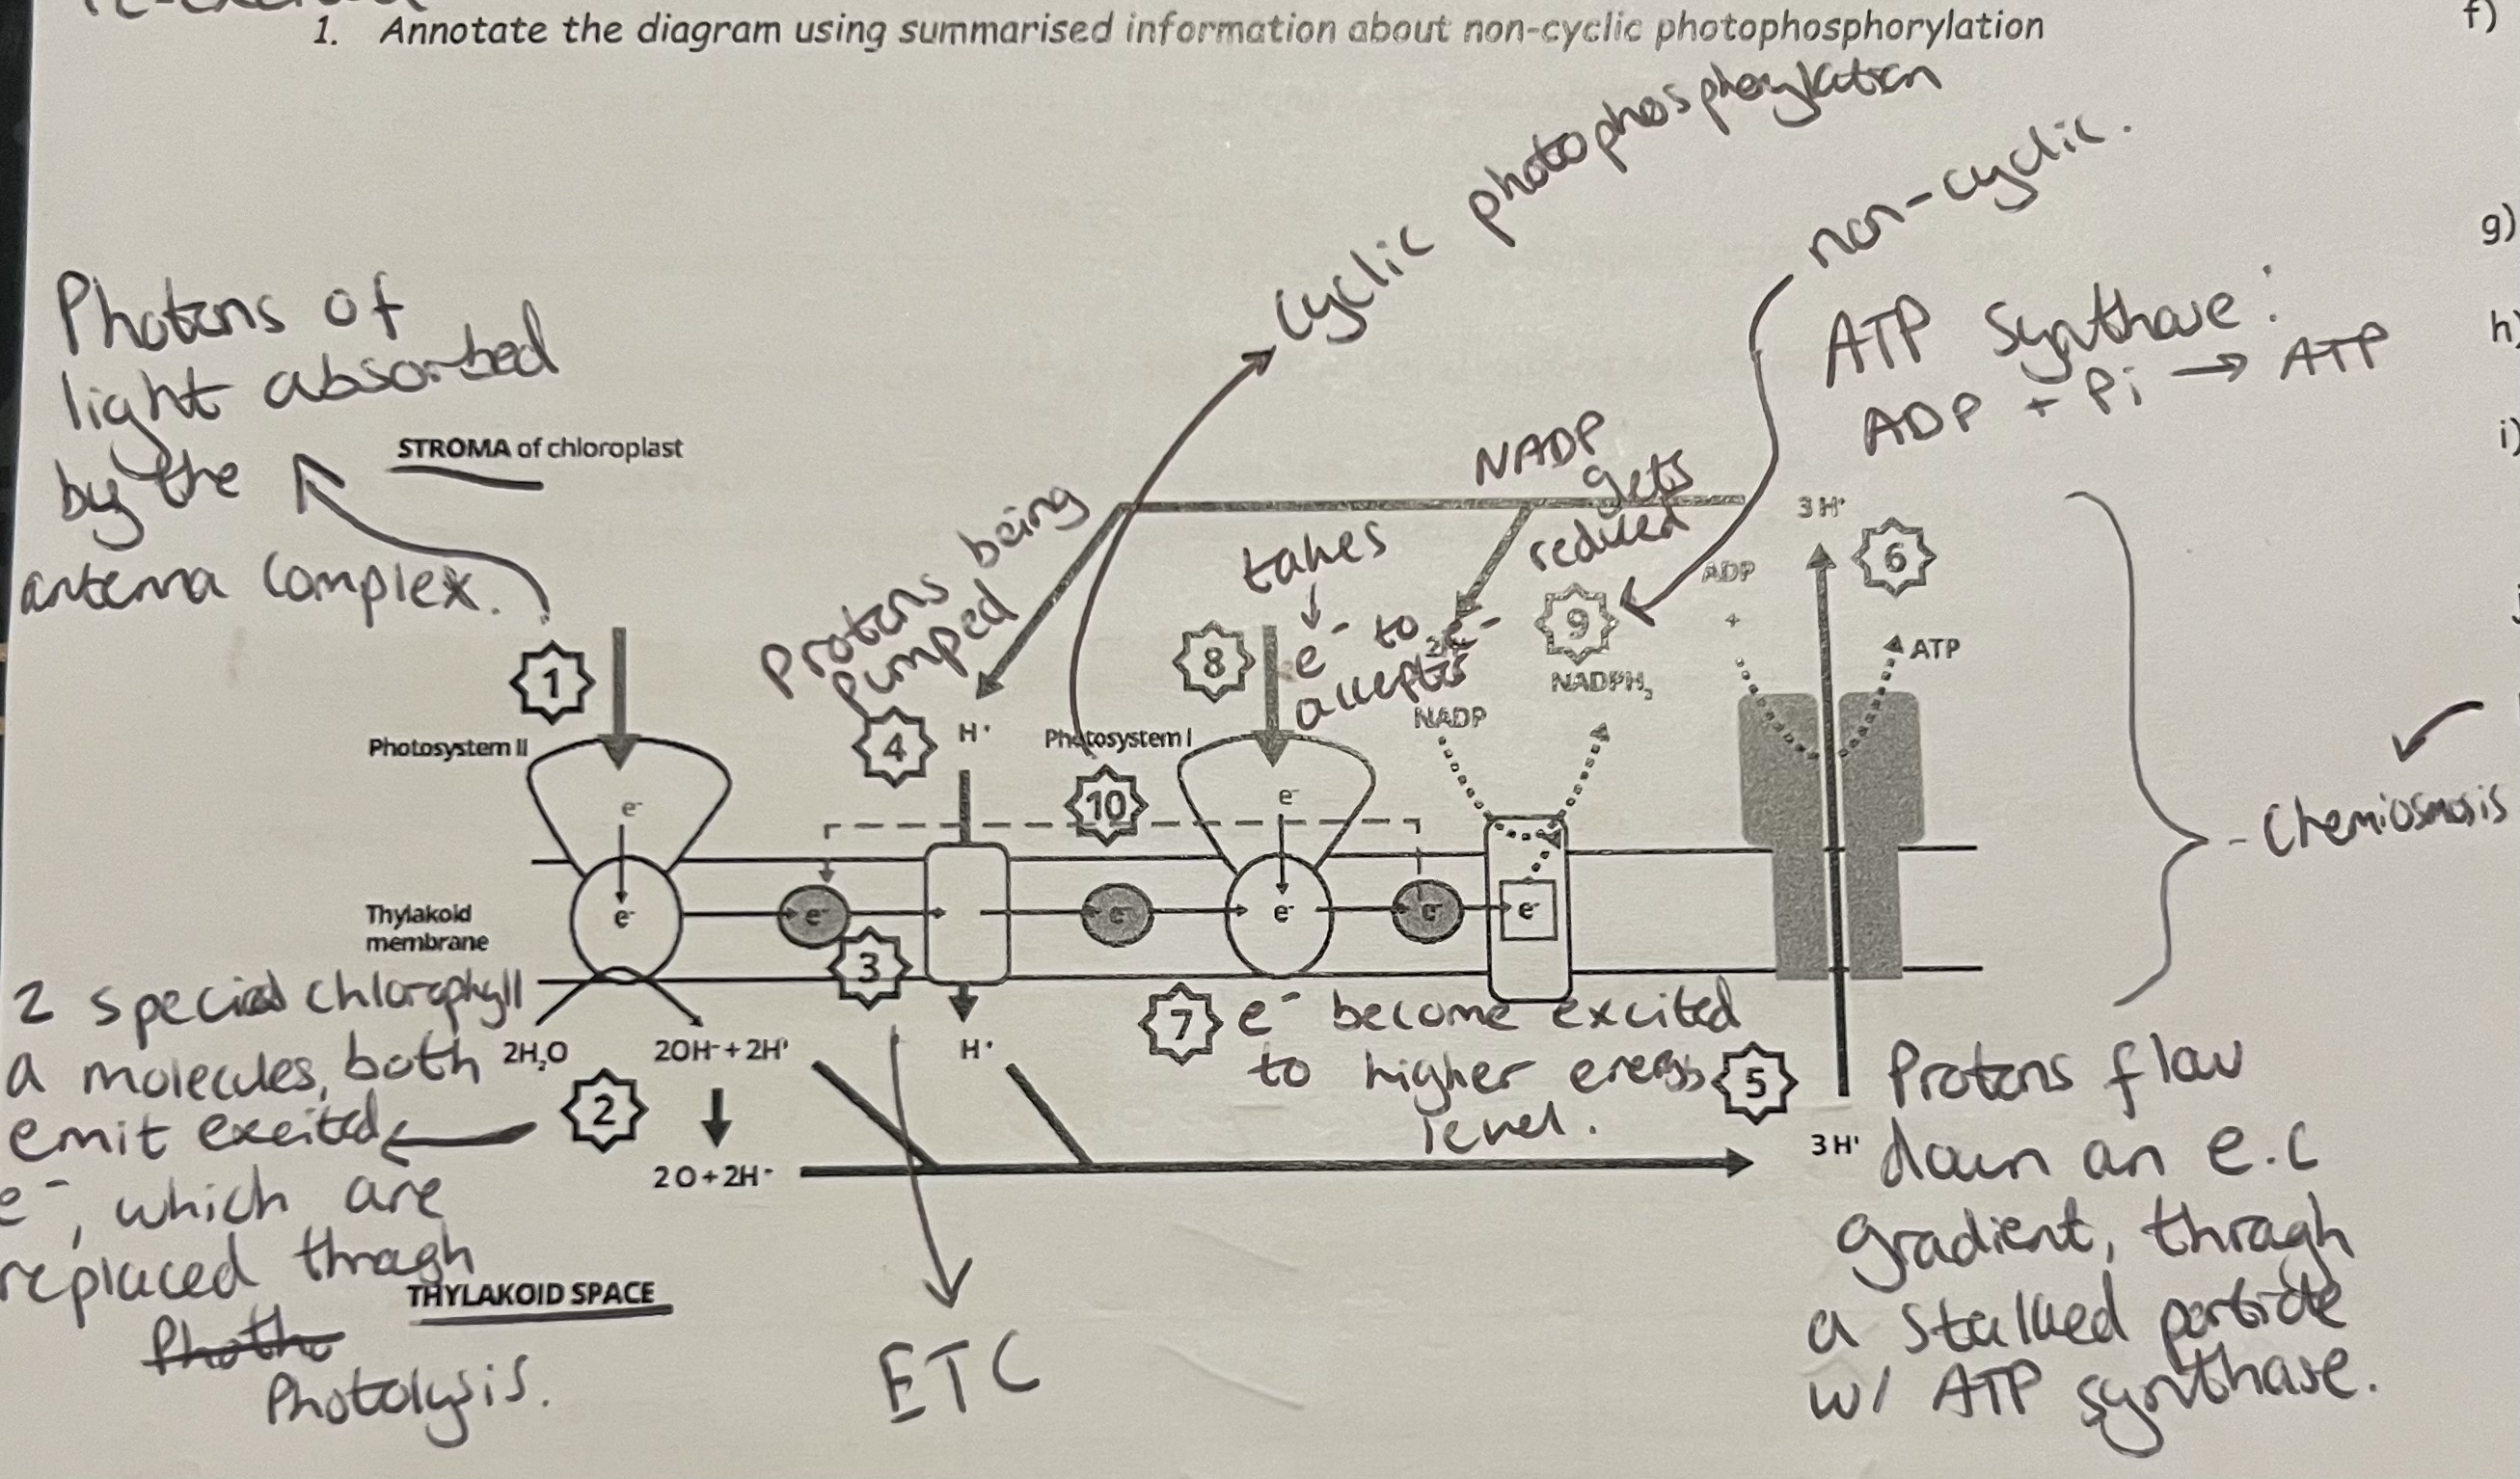 1. Annotate the diagram using summarised information about non-cyclic photophosphorylation
f)
g)
h)
i)
cyclic photophosphorylation
non-cyclic.
Photons of
light absorbed
by the
antenna complex.
STROMA of chloroplast
ATP Synthase:
ADP + Pi → ATP
NADP
gets
reduced
Protons being
pumped
takes
e⁻ to
acceptor
3 H⁺
6
ADP
+
ATP
1
8
9
NADPH₂
NADP
4
H⁺
Photosystem II
Photosystem I
10
e⁻
e⁻
Chemiosmosis
Thylakoid
membrane
e⁻
e⁻
e⁻
e⁻
e⁻
e⁻
3
2 special chlorophyll
a molecules, both
emit excited
e⁻, which are
replaced through
Photolysis.
2H₂O
2OH⁻ + 2H⁺
H⁺
2
2 O + 2H⁺
7
e⁻ become excited
to higher energy
level.
5
3 H⁺
Protons flow
down an e.c
gradient, through
a stalked particle
w/ ATP synthase.
THYLAKOID SPACE
ETC